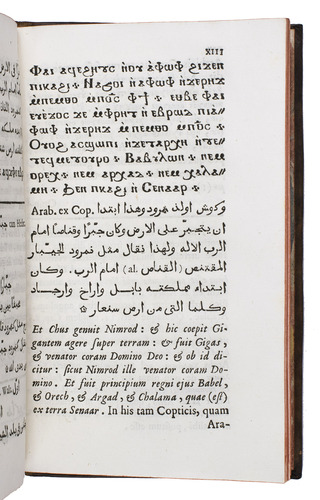 XIII
Ⲫⲁⲓ ⲁϥⲉⲣϩⲏⲧⲥ ⲛ̀ⲟⲩ ⲁⲫⲱⲫ ϩⲓϫⲉⲛ
ⲡⲓⲕⲁϩⲓ ✠ Ⲛⲁϥⲟⲓ ⲛ̀ⲁⲫⲱⲫ ⲛ̀ϫⲉⲣⲏϫ
ⲙ̀ⲡⲉⲙⲑⲟ ⲙ̀ⲡⲟ̅ⲥ̅ ⲫϯ ✠ ⲉⲑⲃⲉ ⲫⲁⲓ
ⲉⲩⲉϫⲟⲥ ϫⲉ ⲙ̀ⲫⲣⲏϯ ⲛ̀ⲉⲃⲣⲱⲇ ⲡⲓⲁ-
ⲫⲱⲫ ⲛ̀ϫⲉⲣⲏϫ ⲙ̀ⲡⲉⲙⲑⲟ ⲙ̀ⲡⲟ̅ⲥ̅ ✠
Ⲟⲩⲟϩ ⲁⲥϣⲱⲡⲓ ⲛ̀ϫⲉⲧⲁⲣⲭⲏ ⲛ̀
ⲧⲉϥⲙⲉⲧⲟⲩⲣⲟ ✠ Ⲃⲁⲃⲩⲗⲱⲛ ✠ ⲛⲉⲙ
ⲟⲣⲉⲭ ✠ ⲛⲉⲙ ⲁⲣⲭⲁⲇ ✠ ⲛⲉⲙ ⲭⲁⲗⲁⲛ-
ⲛⲏ ✠ Ϧⲉⲛ ⲡⲕⲁϩⲓ ⲛ̀ Ⲥⲉⲛⲁⲁⲣ ✠
Arab. ex Cop. وكوش اولد نمرود وهذا ابتدا
ان يتجبر على الارض وكان جبّرا وقناصا امام
الرب الاله ولهذا نقال مثل نمرود الجيبار
المقتنص (al. القناص) امام الرب. وكان
ابتداء مملكته بابل واراخ وارجاد
وكلما التي من ارض سنعار
Et Chus genuit Nimrod: & hic coepit Gi-
gantem agere super terram: & fuit Gigas,
& venator coram Domino Deo: & ob id di-
citur: sicut Nimrod ille venator coram Do-
mino. Et fuit principium regni ejus Babel,
& Orech, & Argad, & Chalama, quae (est)
ex terra Senaar. In his tam Copticis, quam
Ara-